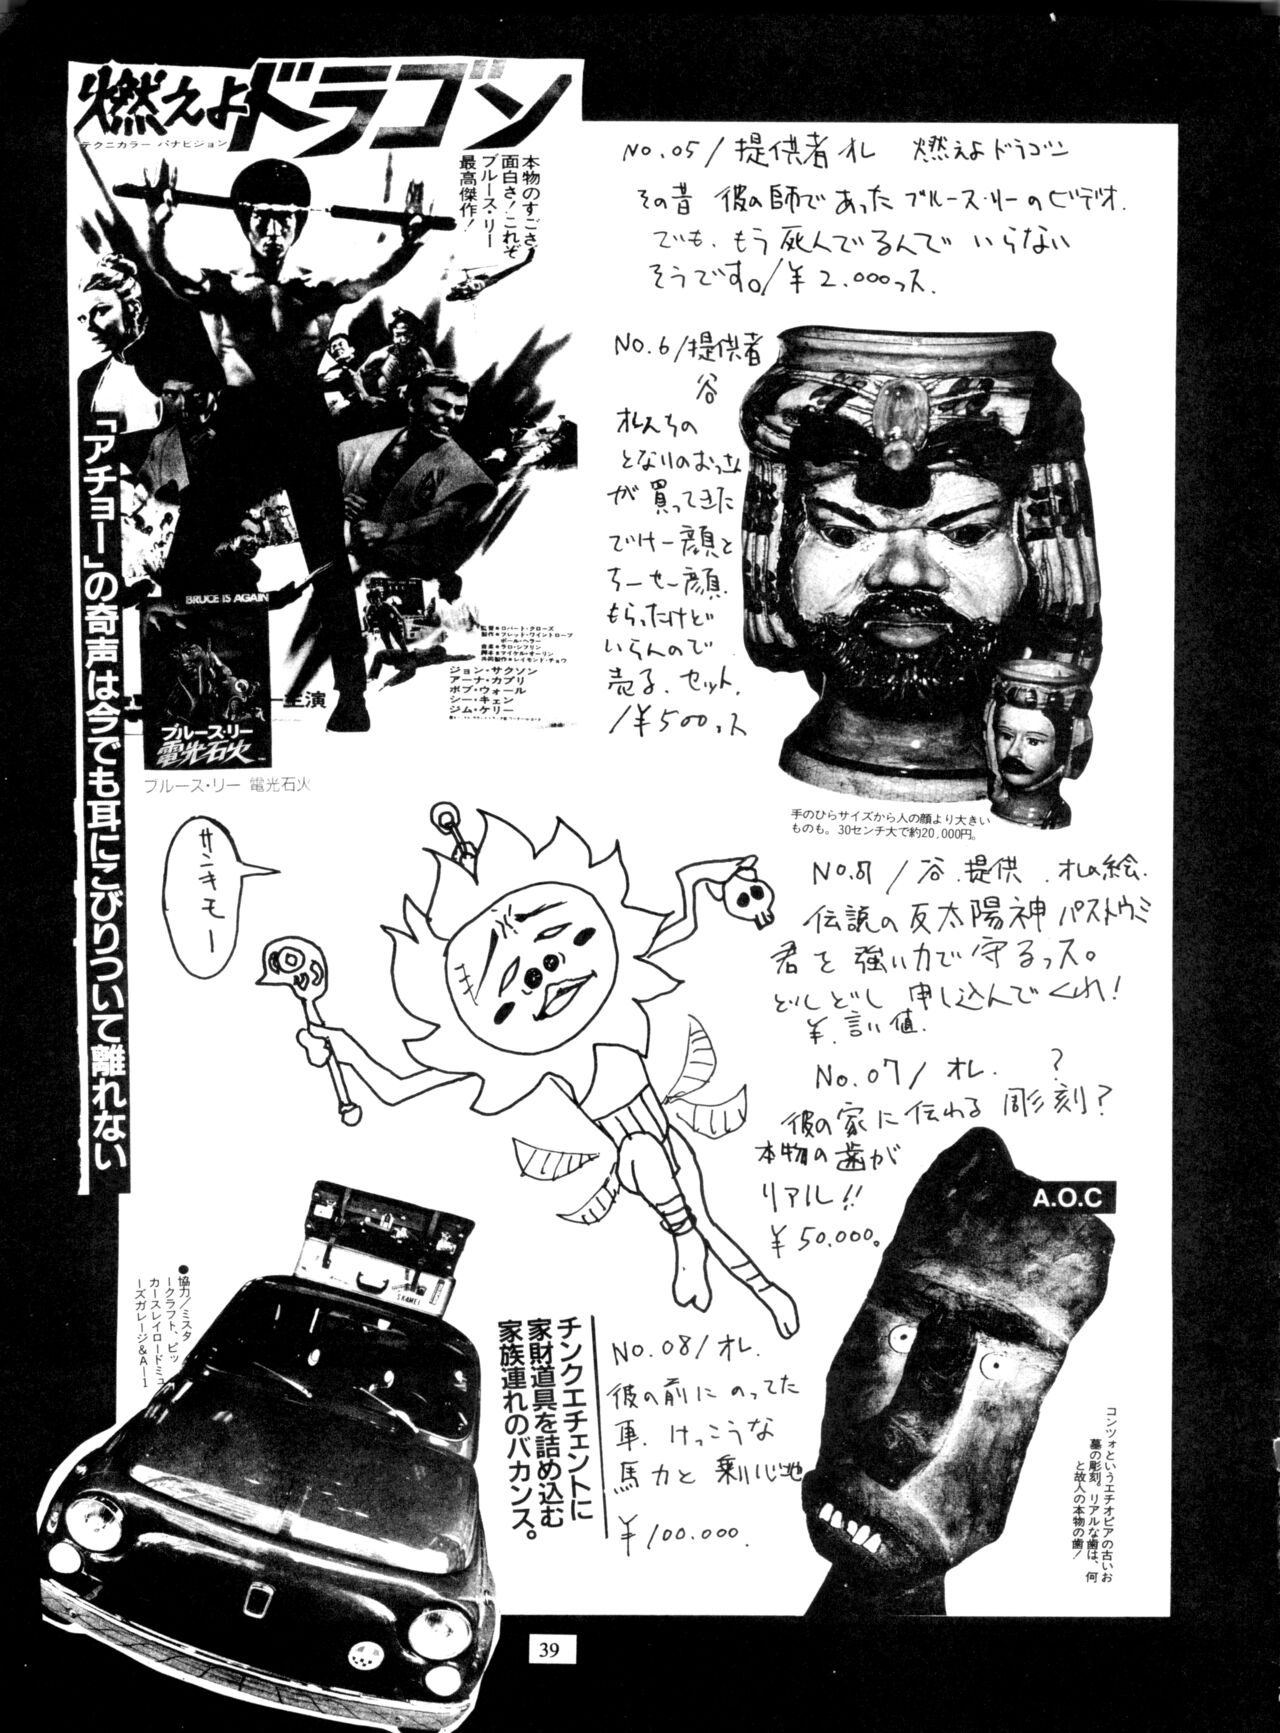 燃えよドラゴン
テクニカラー パナビジョン
本物のすごさ、
面白さ!これぞ
ブルース・リー
最高傑作!
「アチョー」の奇声は今でも耳にこびりついて離れない
BRUCE IS AGAIN
ブルース・リー
電光石火
主演
監督●ロバート・クローズ
製作●フレッド・ワイントローブ
ポール・ヘラー
音楽●ラロ・シフリン
脚本●マイケル・オーリン
共同製作●レイモンド・チョウ
ジョン・サクソン
アーナ・カプリ
ボブ・ウォール
シー・キェン
ジム・ケリー
ブルース・リー 電光石火
No.05/提供者オレ 燃えよドラゴン
その昔 彼の師であったブルース・リーのビデオ.
でも、もう死んでるんで いらない
そうです。/¥2.000っス.
No.6/提供者
谷
オレんちの
となりのおっさん
が買ってきた
でけー顔と
ちーせー顔.
もらったけど
いらんので
売る.セット.
/¥500っス
手のひらサイズから人の顔より大きい
ものも。30センチ大で約20,000円。
サンキモー
/谷.提供.オレの絵.
伝説の反太陽神パストウミ
君を強い力で守るっス。
どしどし 申し込んでくれ!
¥.言い値.
No.07/オレ. ?
彼の家に伝わる彫刻?
本物の歯が
リアル!!
¥50.000。
A.O.C
コンツォというエチオピアの古いお
墓の彫刻。リアルな歯は、何
と故人の本物の歯!
No.08/オレ.
彼の前にのってた
車.けっこうな
馬力と乗り心地
¥100.000.
チンクエチェントに
家財道具を詰め込む
家族連れのバカンス。
●協力/ミスタ
ークラフト、ビッ
カースレイロードミュ
ーズガレージ&A-1
39